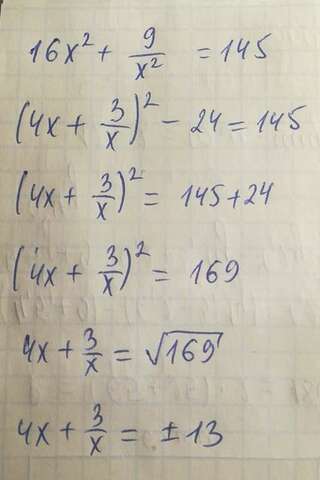 16x² + 9/x² = 145
(4x + 3/x)² - 24 = 145
(4x + 3/x)² = 145 + 24
(4x + 3/x)² = 169
4x + 3/x = √169
4x + 3/x = ±13